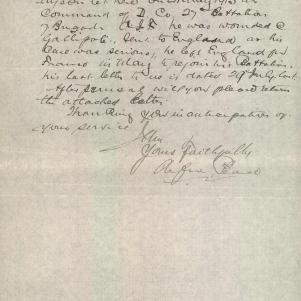 Command of D Co 27th Battalion
7 Brigade A.I.F. he was wounded @
Gallipoli, sent to England as his
Case was serious, he left England for
France in May to rejoin his Battalion.
his last letter to us is dated July last.
After perusal will you please return
the attached letter
Thanking you in anticipation of
your service
I Am
Yours Faithfully